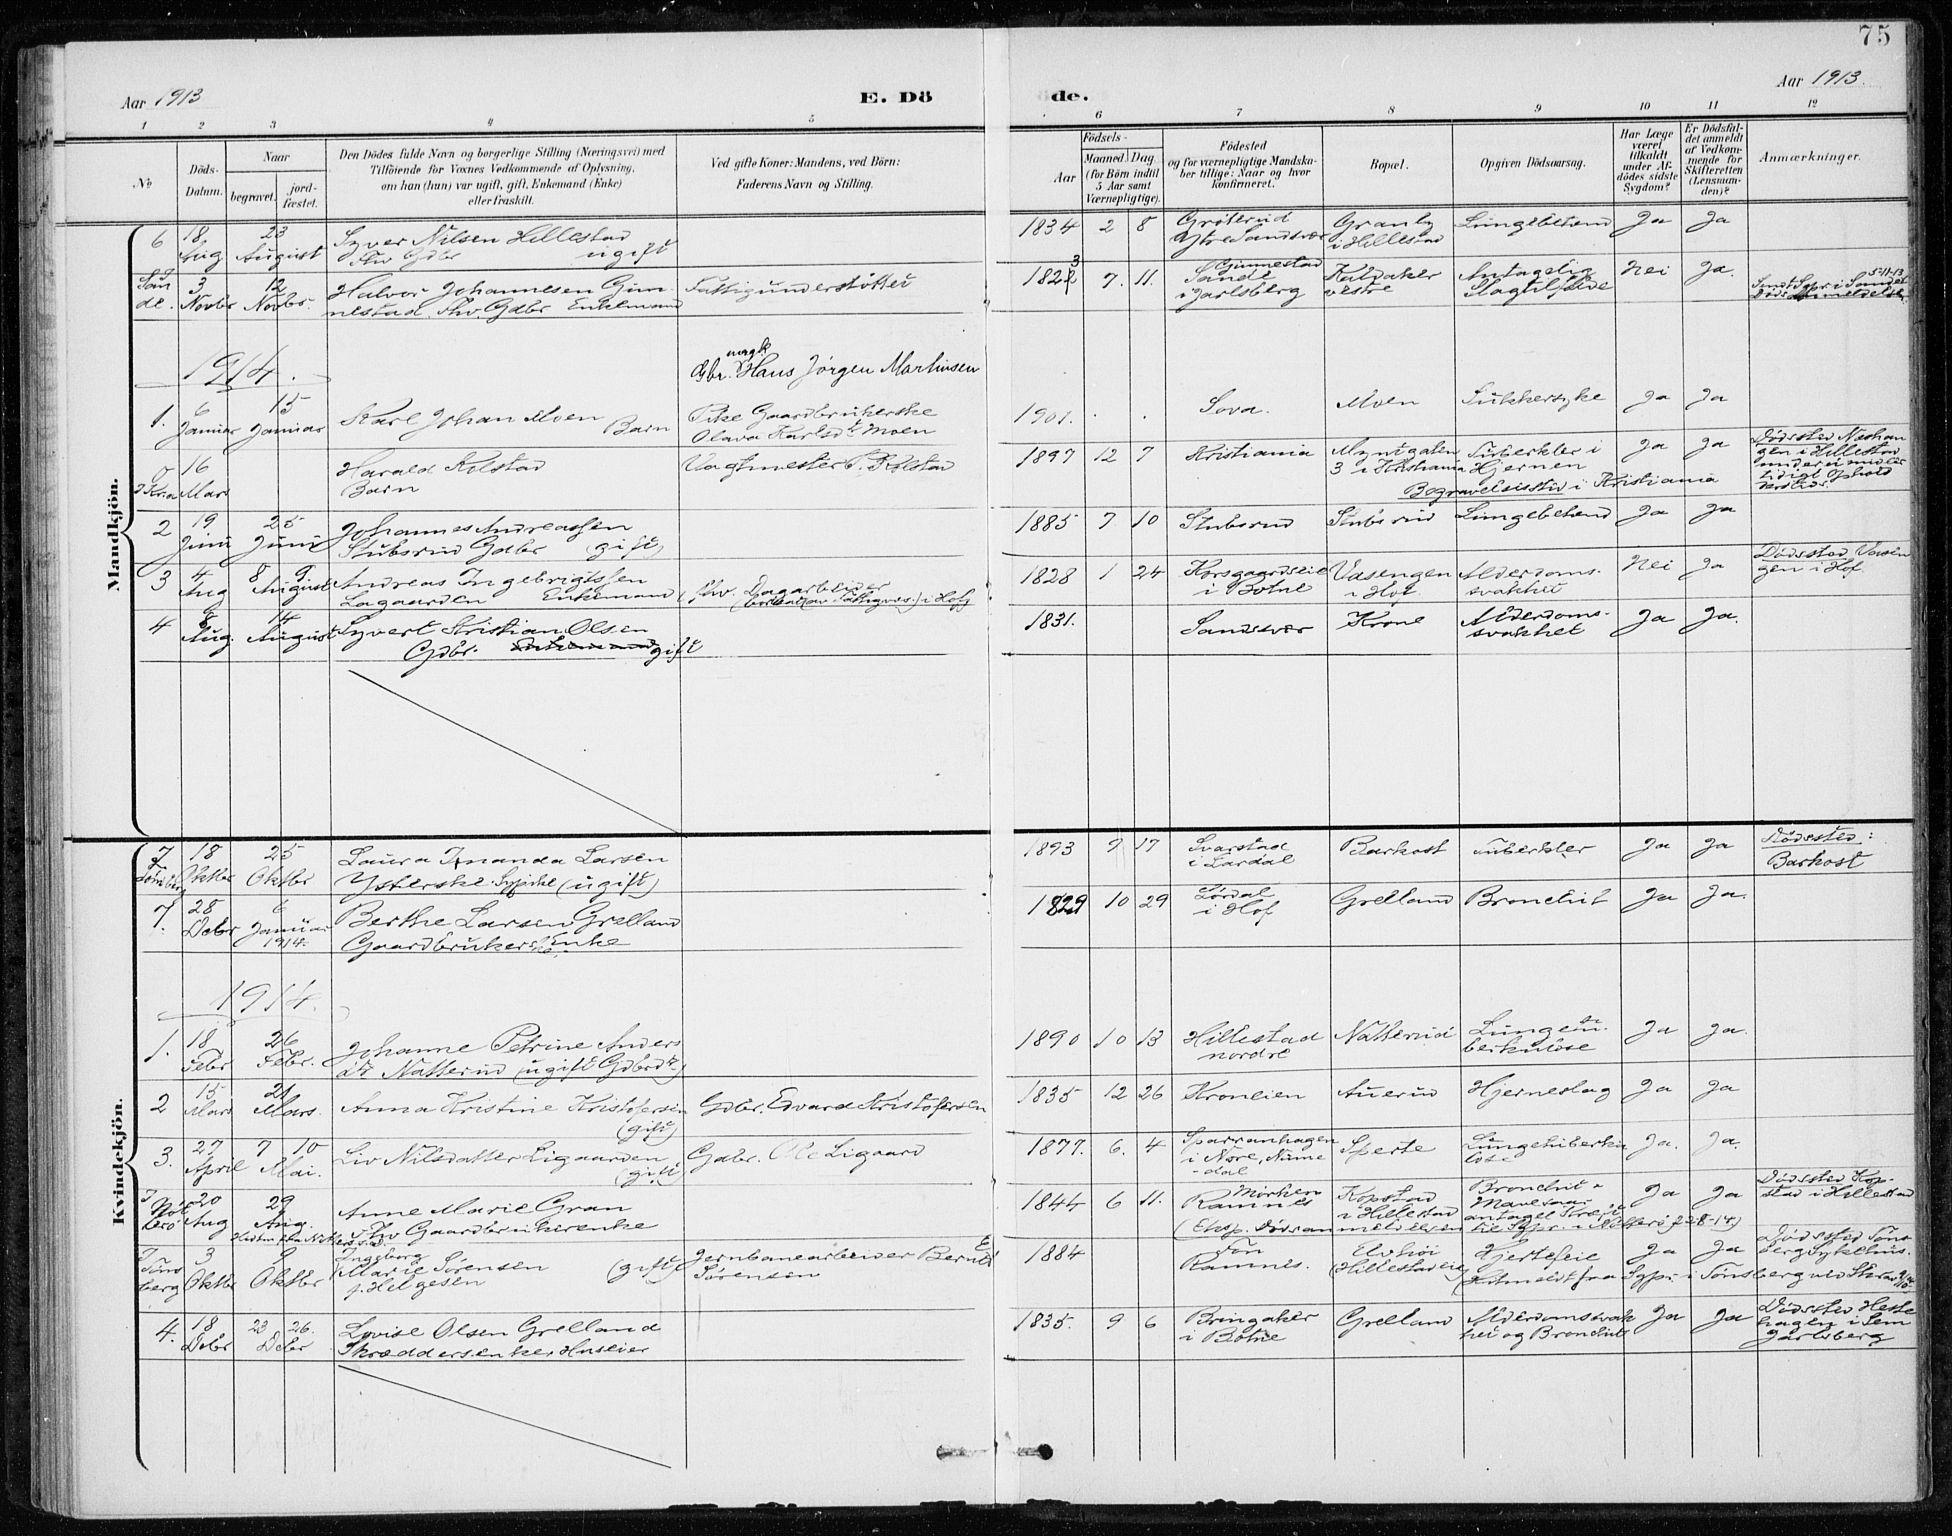 75
Aar 1913
E. Dö
de.
Aar 1913.
1 2 3 4 5
6 7 8 9 10 11 12
No
Döds-
Datum.
Naar
begravet.
jord-
fæstet.
Den Dödes fulde Navn og borgerlige Stilling (Næringsvei) med
Tilföiende for Voxnes Vedkommende af Oplysning,
om han (hun) var ugift, gift, Enkemand (Enke)
eller fraskilt.
Ved gifte Koner: Mandens, ved Börn:
Faderens Navn og Stilling.
Födsels-
Aar
Maaned. Dag.
(for Börn indtil
5 Aar samt
Værnepligtige).
Födested
og for værnepligtige Mandska-
ber tillige: Naar og hvor
konfirmeret.
Bopæl.
Opgiven Dödsaarsag.
Har Læge
været
tilkaldt
under Af-
dödes sidste
Sygdom?
Er Dödsfal-
det anmeldt
af Vedkom-
mende for
Skifteretten
(Lensman-
den)?
Anmærkninger.
Mandkjön.
6 18 Aug 23 August
Syver Nilsen Hillestad
Fhv Gdbr ugift
1834 2 8
Grøterud
Ytre Sandsvær
Granly
i Hillestad
Lungebetend Ja Ja
San
de. 3 Novbr 12 Novbr.
Halvor Johannesen Gun-
nestad. Fhv. Gdbr Enkemand
Fattigunderstøttet
1823 7. 11.
Gunnestad
Sande
i Jarlsberg
Kaldaker
vestre
Antagelig
Slagtilfælde
Nei Ja.
5-11-13
1914.
Gbr. Hans Jørgen Martinsen
1. 6 Januar 15 Januar
Karl Johan Moen
Barn
Pike Gaardbrukerske
Olava Karlsdtr Moen
1901. . .
Sova. Moen Sukkersyke Ja Ja
16 Mars
Harald Kilstad
Barn
Vagtmester P. Kilstad
1897 12 7
Kristiania
Myntgaten
3 i Kristiania
Tuberkler i
Hjernen
Begravelsessted i Kristiania
Ja Ja
Dødssted Nashau
gen i Hillestad
under ei midler
tidigt Ophold
2 19 Juni 25 Juni
Johannes Andreassen
Stubsrud Gdbr (gift)
1885 7 10
Stubsrud Stubsrud Lungebetend Ja Ja
3 4 Aug 8 9 August
Andreas Ingebrigtssen
Lagaarden Enkemand
Fhv. Dagarbeider
i Hof)
1828 1 24
Korsgaardseie
i Botne
Vasengen
i Hof
Alderdoms-
svakhet
Nei Ja
Dødssted Vasen
gen i Hof
4 8 Aug. 14 August
Syvert Kristian Olsen
Gdbr. gift
1831.
Sandsvær Krone
Alderdoms-
svakhet
Ja Ja.
Kvindekjön.
7 Tønsberg 18 Oktbr 25 Oktbr
Laura Amanda Larsen
Ysterske. Sypike (ugift)
1893 9 17
Svarstad
i Lardal
Barkost Tuberkler Ja Ja
Dødssted:
Barkost
7. 28 Debr 6 Januar
1914.
Berthe Larsen Grelland
Gaardbrukerske Enke
1829 10 29
Lørdal
i Hof
Grelland Bronchit Ja Ja.
1914.
1. 18 Febr 26 Febr.
Johanne Petrine Anders
dtr Natterud (ugift Gdbrdtr)
1890 10 13
Hillestad
nordre
Natterud
Lungetu-
berkuløse
Ja Ja.
2 15 Mars 21 Mars.
Anna Kristine Kristofersen
(gift)
Gdbr. Edvard Kristofersen
1835 12 26
Kroneien Auerud Hjerneslag Ja Ja
3. 27 April 7 10 Mai.
Liv Nilsdatter Ligaarden
(gift)
Gdbr. Ole Ligaard
1877. 6. 4
Sparranhagen
i Nore, Nume
-dal
Sperte
Lungetuberku
løse
Ja. Ja.
I Nøt
terø 20 Aug 29 Aug.
Anne Marie Gran
Fhv Gaardbrukerenke
1844 6 11.
Mørken
Ramnes
Kopstad
i Hillestad
Bronchit &
Ja Ja
Dødssted Kop-
stad i Hillestad
I Tøns
berg 3 Oktbr 9 Oktbr
Ingeborg
Marie Sørensen (gift)
f. Helgesen
Jernbanearbeider Bernt E
Sørensen
1884
Fon
Ramnes.
Elvhøi
(Hillestadeie)
Hjertefeil
Ja Ja
Dødssted Tøns
bergsykehus.
(Utmeldt fra Sgpr. i Tønsberg
4. 18 Debr 23 26. Debr
Lovise Olsen Grelland
Skreddersenke, Huseier
1835. 9 6
Bringaker
i Botne
Grelland
Alderdomssvak
het og Bronchit
Ja Ja
Dødssted Heste
hagen i Sem
Jarlsberg